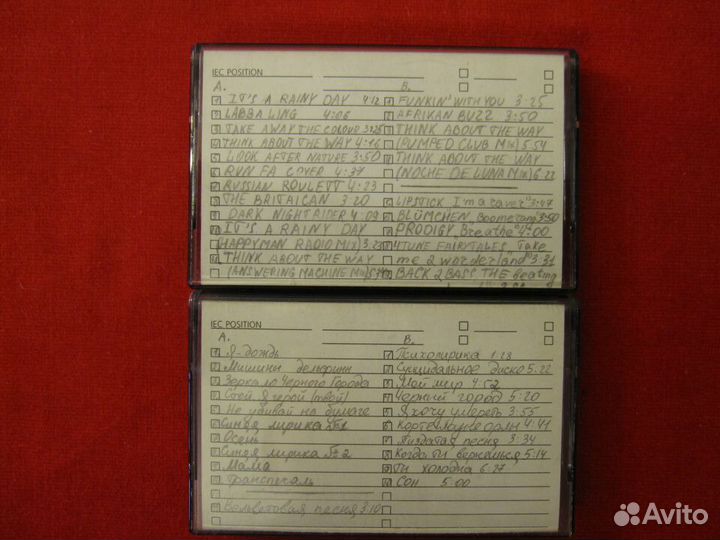 IEC POSITION
A.
B.
IT'S A RAINY DAY 4:12
LABBA LING 4:06
TAKE AWAY THE COLOUR 3:25
THINK ABOUT THE WAY 4:16
LOOK AFTER NATURE 3:50
RUN FA COVER 4:37
RUSSIAN ROULETT 4:23
THE BRITAICAN 3:20
DARK NIGHT RIDER 4:09
IT'S A RAINY DAY
(HAPPYMAN RADIO MIX)
THINK ABOUT THE WAY
(ANSWERING MACHINE MIX)
FUNKIN' WITH YOU 3:25
AFRIKAN BUZZ 3:50
THINK ABOUT THE WAY
(PUMPED CLUB MIX) 5:54
THINK ABOUT THE WAY
(NOCHE DE LUNA MIX) 6:22
LIPSTICK „I'm a raver" 3:47
BLÜMCHEN „Boomerang" 3:50
PRODIGY „Breathe" 4:00
4TUNE FAIRYTALES, Take
me 2 wonderland" 3:31
BACK 2 BASS THE beating
IEC POSITION
A.
B.
Я-дождь
Мишины дельфины
Зеркало Чёрного Города
Стой, я герой (твой)
Не убивай на бумаге
Синяя лирика №1
Осень
Синяя лирика №2
Мама
Транспечаль
Вельветовая песня 3:10
Психолирика 1:28
Суицидальное диско 5:22
Мой мир 4:52
Чёрный город 5:20
Я хочу умереть 3:55
Кортежнуе 4:41
Пиздатая песня 3:34
Когда ты вернёшься 5:14
Ты холодна 6:27
Сон 5:00
Avito